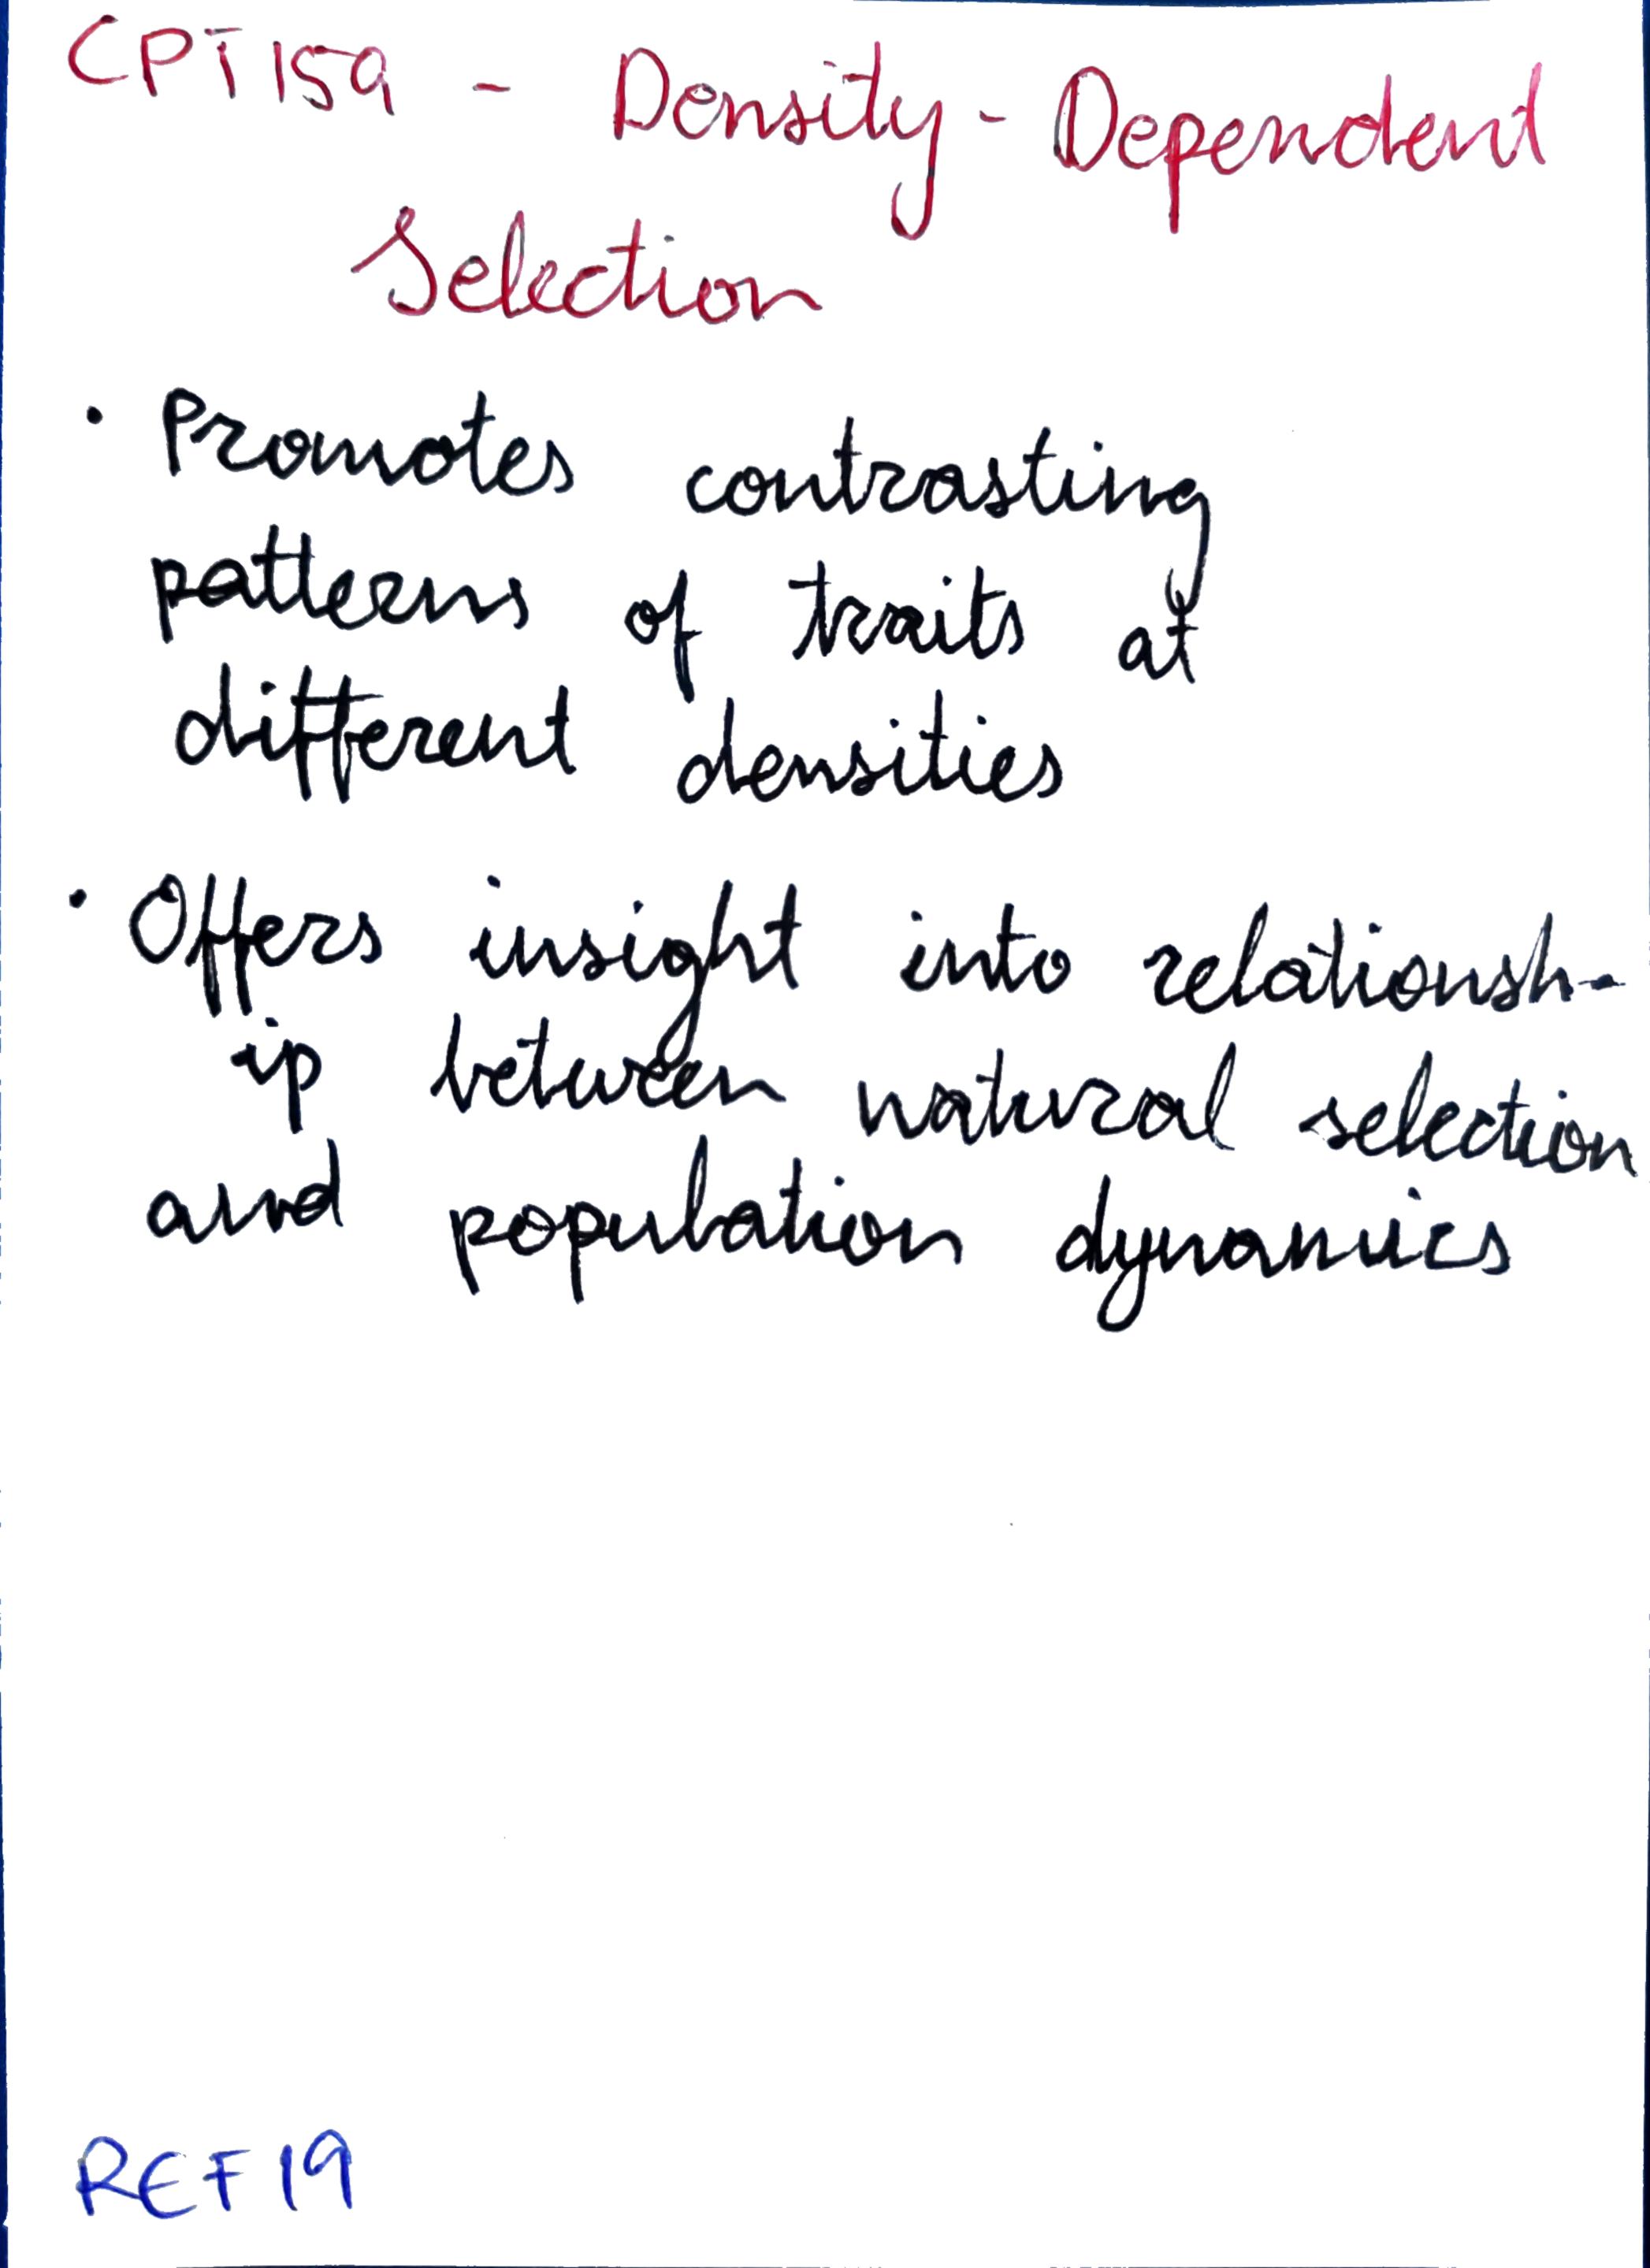 CPT159 - Density-Dependent
Selection
• Promotes contrasting
patterns of traits at
different densities
• Offers insight into relationsh-
ip between natural selection
and population dynamics
REF19